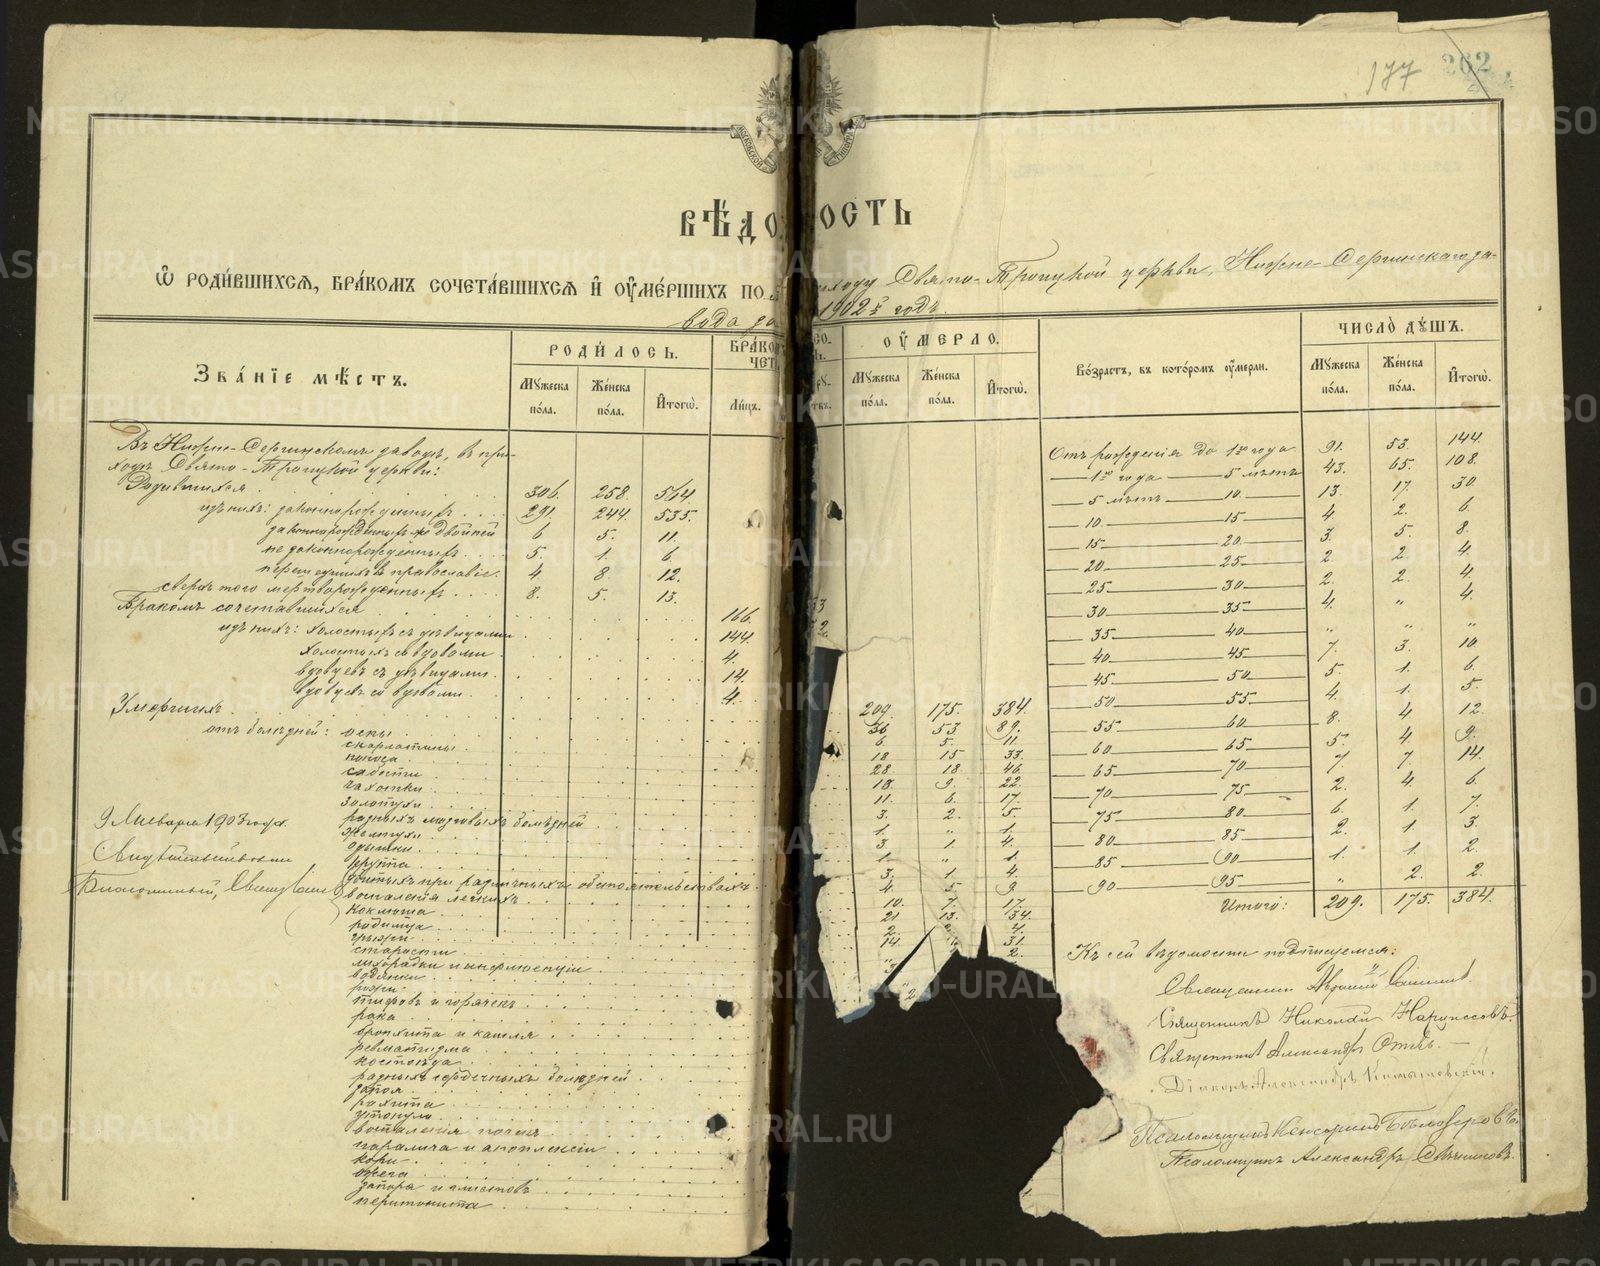 177
262
ВѢДО ОСТЬ
Ѡ РОДИ́ВШИХСѦ, БРА́КОМЪ СОЧЕТА́ВШИХСѦ И҆ ОУ҆МЕ́РШИХЪ ПО
Свято-Троицкой церкви, Нижне-Сергинскаго за-
вода за 1902й годъ.
ЗВА́НІЕ МѢ́СТЪ.
РОДИ́ЛОСЬ.
Мꙋ́жеска по́ла.
Же́нска по́ла.
И҆того̀.
БРА́КО
ЧЕТ
Ли́цъ.
ОУ҆́МЕРЛО.
Мꙋ́жеска по́ла.
Же́нска по́ла.
И҆того̀.
Во́зрастъ, въ кото́ромъ оу҆́мерли.
ЧИСЛО̀ ДꙊ́ШЪ.
Мꙋ́жеска по́ла.
Же́нска по́ла.
И҆того̀.
Въ Нижне-Сергинскомъ заводѣ, въ при-
ходѣ Свято-Троицкой церкви:
Родившихся 306. 258. 564.
изъ нихъ: законнорожденныхъ 291. 244. 535.
законнорожденныхъ двойней 6 5. 11.
незаконнорожденныхъ 5. 1. 6.
перешедшихъ въ православіе. 4 8. 12.
сверхъ того мертворожденныхъ 8. 5. 13.
Бракомъ сочетавшихся 166.
изъ нихъ: холостыхъ съ дѣвицами 144.
холостыхъ съ вдовами 4.
вдовцевъ съ дѣвицами. 14.
вдовцевъ со вдовами. 4.
Умершихъ 209. 175. 384.
отъ болѣзней: оспы 36 53 89.
скарлатины 6 5. 11.
поноса 18 15 33.
слабости 28 18 46.
чахотки 18. 9. 22.
золотухи 11. 6. 17.
разныхъ мозговыхъ болѣзней 3. 2. 5.
желтухи 1. " 1.
одышки 3. 1. 4.
круппа 1. " 1.
убитыхъ при различныхъ обстоятельствахъ 3. 1. 4
воспаленія легкихъ 4. 5 9
коклюша 10. 7. 17.
родимца 21 13. 34.
грыжи 2. 4.
старости 14. 31.
лихорадки и инфлюенціи 2.
водянки
рожи
тифовъ и горячекъ
рака
бронхита и кашля
ревматизма
костоѣда
разныхъ сердечныхъ болѣзней
запоя
рахита
утонули
воспаленія почекъ
паралича и апоплексіи
кори
ожега
запора и глистовъ
перитонита
9 Января 1903 года.
Отъ рожденія до 1го года 91. 53. 144.
1го года 5 лѣтъ 43. 65. 108.
5 лѣтъ 10. 13. 17. 30.
10. 15 4 2. 6.
15 20 3. 5. 8.
20 25 2 2 4.
25 30 2. 2. 4.
30 35 4. " 4.
35 40 " " "
40 45 7. 3. 10.
45 50 5. 1. 6.
50 55 4. 1. 5.
55 60 8. 4 12.
60 65 5. 4 9.
65 70 7. 7. 14.
70 75 2. 4 6.
75 80 6. 1. 7.
80 85 2. 1. 3.
85 90 1. 1. 2.
90 95 " 2. 2.
Итого: 209. 175. 384.
Къ сей вѣдомости подписуемся:
Священникъ
Священникъ Николай
Священникъ Александръ
Діаконъ Александръ
Псаломщикъ
Псаломщикъ Александръ
METRIKI.GASO-URAL.RU